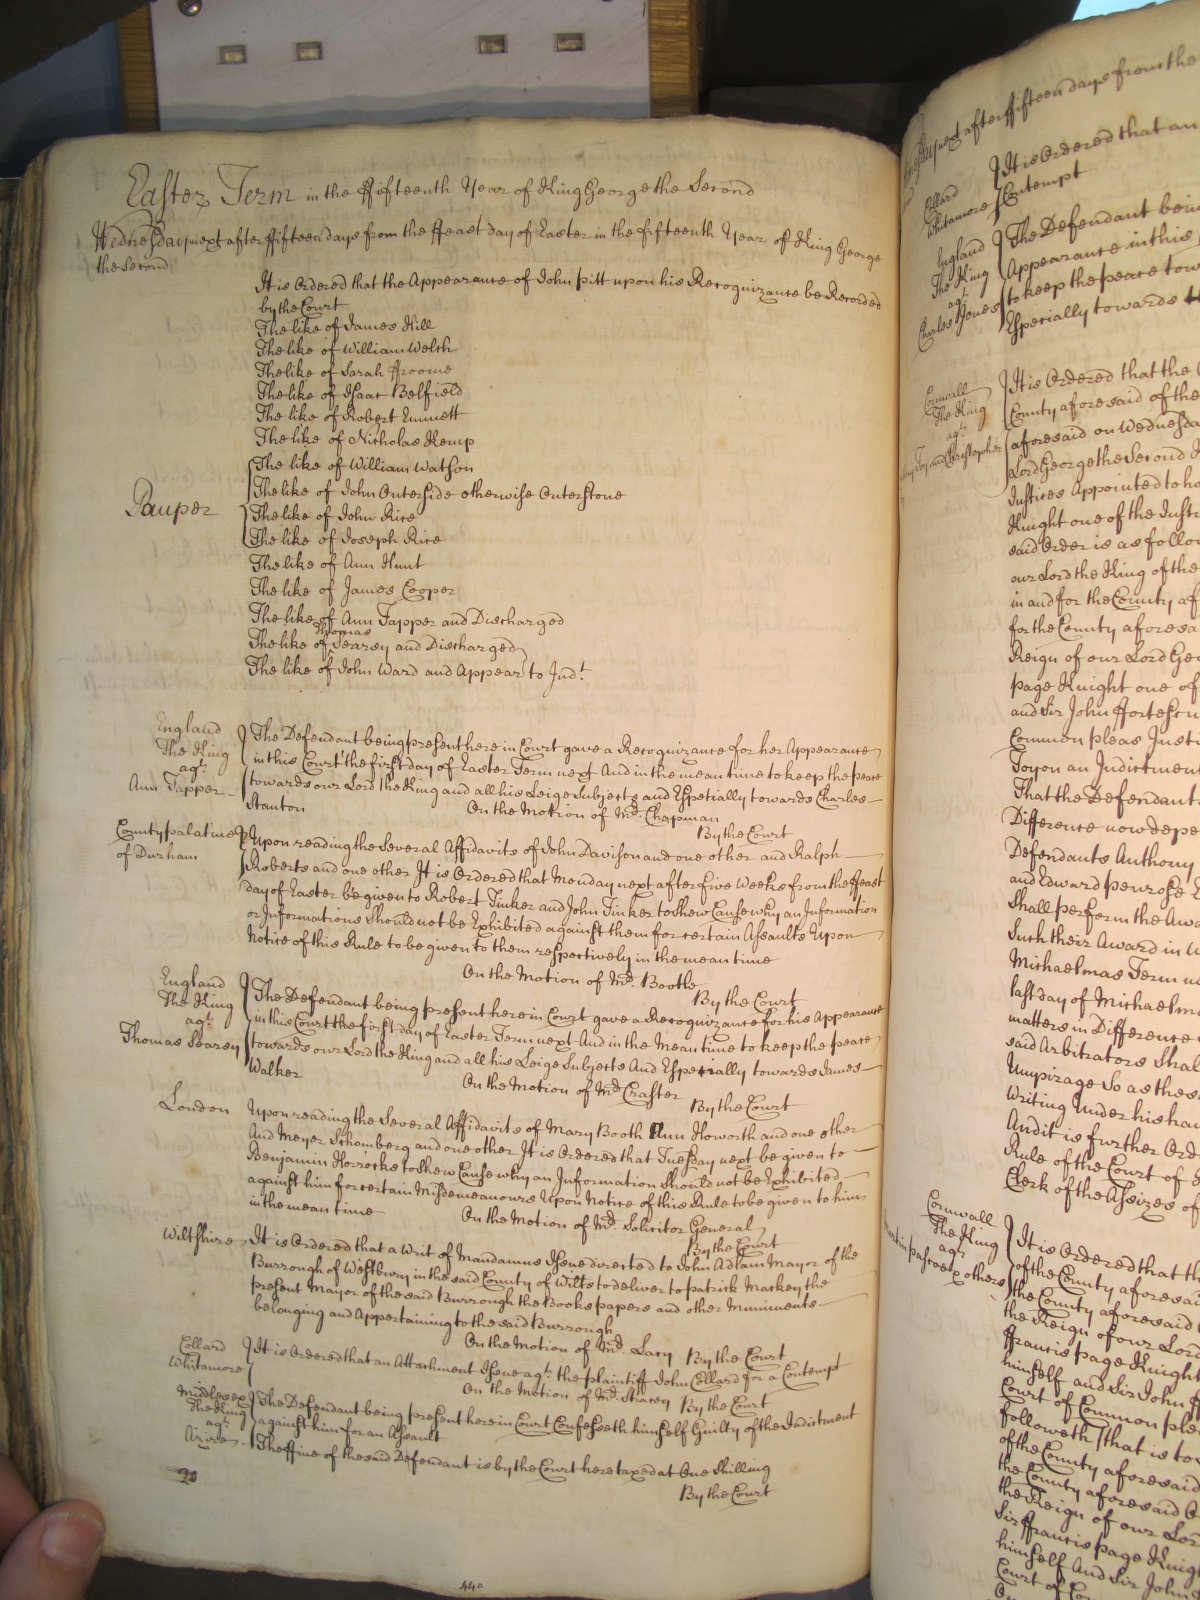 Easter Term in the ffifteenth Year of King George the Second
Wednesday next after ffifteen days from the ffeast day of Easter in the fifteenth Year of King George
the Second
It is Ordered that the Appearance of John pitt upon his Recognizance be Recorded
by the Court
The like of James Hill
The like of William Welsh
The like of Sarah ffroome
The like of Isaac Belfield
The like of Robert Emmett
The like of Nicholas Kemp
The like of William Watson
The like of John Outerside otherwise Outerstone
Pauper
The like of John Rice
The like of Joseph Rice
The like of Ann Hunt
The like of James Cooper
The like of Ann Tapper and Discharged
Thomas
The like of Searey and Discharged
The like of John Ward and Appear to Jud.t
England
The King
ag.t
Ann Tapper
The Defendant being present here in Court gave a Recognizance for her Appearance
in this Court the first day of Easter Term next And in the mean time to keep the peace
towards our Lord the King and all his Leige Subjects and Especially towards Charles
Stanton On the Motion of Mr. Chapman
By the Court
County palatine
of Durham
Upon reading the Several Affidavits of John Davison and one other and Ralph
Roberts and one other It is Ordered that Monday next after five Weeks from the ffeast
day of Easter be given to Robert Tinker and John Tinker to shew Cause why an Information
or Informations Should not be Exhibited against them for certain Assaults Upon
Notice of this Rule to be given to them respectively in the mean time
On the Motion of Mr. Bootle
By the Court
England
The King
ag.t
Thomas Searey
The Defendant being present here in Court gave a Recognizance for his Appearance
in this Court the first day of Easter Term next And in the Mean time to keep the peace
towards our Lord the King and all his Leige Subjects And Especially towards James
Walker On the Motion of Mr. Craster
By the Court
London
Upon reading the Several Affidavits of Mary Booth Ann Howorth and one other
And Meyer Schomberg and one other It is Ordered that Tuesday next be given to
Benjamin Horrocks to shew Cause why an Information Should not be Exhibited
against him for certain Misdemeanours Upon Notice of this Rule to be given to him
in the mean time On the Motion of Mr. Solicitor General
By the Court
Wiltshire
It is Ordered that a Writ of Mandamus Issue directed to John Adlam Mayor of the
Burrough of Westbury in the said County of Wilts to deliver to Patrick Markey the
present Mayor of the said Burrough the Books papers and other Muniments
belonging and Appertaining to the said Burrough
On the Motion of Mr. Lacy By the Court
Collard
Whitamore
It is Ordered that an Attachment Issue ag.t the plaintiff John Collard for a Contempt
On the Motion of Mr. Starey By the Court
Middlesex
The King
ag.t
The Defendant being present here in Court Confesseth himself Guilty of the Indictment
against him for an Assault
The ffine of the said Defendant is by the Court here taxed at One Shilling
By the Court
20
440
next after ffifteen days from the
Collard
Whitamore
It is Ordered that an
Contempt
England
The King
ag.t
Charles Jones
The Defendant bein
Appearance in this
to keep the peace tow
Especially towards
Cornwall
The King
ag.t
Christopher
It is Ordered that the
County aforesaid of the
aforesaid on Wednesda
Lord George the Second
Justices Appointed to ho
Knight one of the Justi
said Order is as follow
our Lord the King of the
in and for the County af
for the County aforesa
Reign of our Lord Geo
page Knight one of
and Sir John ffortescu
Common pleas Justi
Toyon an Indictment
That the Defendant
Difference now depe
Defendants Anthony
and Edward penrose
Shall perform the Awa
Such their Award in W
Michaelmas Term n
last day of Michaelm
matters in Difference
said Arbitrators Shal
Umpirage So as the s
Writing Under his han
And it is further Ord
Rule of the Court of
Clerk of the Assizes of
Cornwall
The King
ag.t
pascoe & others
It is Ordered that th
of the County aforesai
the County aforesaid
the Reign of our Lord
ffrancis page Knight
himself and Sir John ff
Court of Common ple
followeth that is to
of the County aforesaid
the County aforesaid O
the Reign of our Lor
Sir ffrancis page Knigh
himself And Sir John
Court of Com